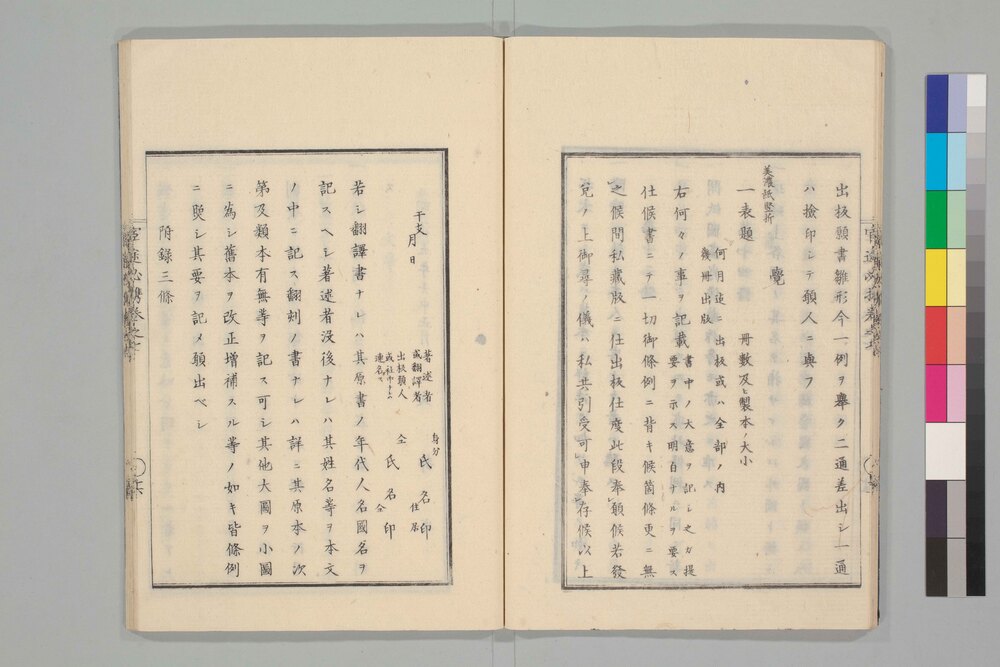 出板願書雛形今一例ヲ擧ク二通差出シ一通
ハ撿印シテ願人ニ與フ
美濃紙竪折
覺
一表題 冊數及ヒ製本ノ大小
何月迠ニ出板或ハ全部ノ内
幾冊出版
右何々ノ事ヲ記載
書中ノ大意ヲ記シ之カ提
要ヲ示ス明白ナルヲ要ス
仕候書ニテ一切御條例ニ背キ候箇條更ニ無
之候間私藏版ニ仕出板仕度此段奉願候若發
兌ノ上御尋ノ儀ハ私共引受可申奉存候以上
干支月日
著述者
或翻譯者
身分 氏名印
住居
出板願人
或社中ナレハ
連名ス
仝 氏名印
仝
若シ翻譯書ナレハ其原書ノ年代人名國名ヲ
記スヘシ著述者没後ナレハ其姓名等ヲ本文
ノ中ニ記ス翻刻ノ書ナレハ詳ニ其原本ノ次
第及類本有無等ヲ記ス可シ其他大圖ヲ小圖
ニ為シ舊本ヲ改正増補スル等ノ如キ皆條例
ニ照シ其要ヲ記メ願出ベシ
附錄三條